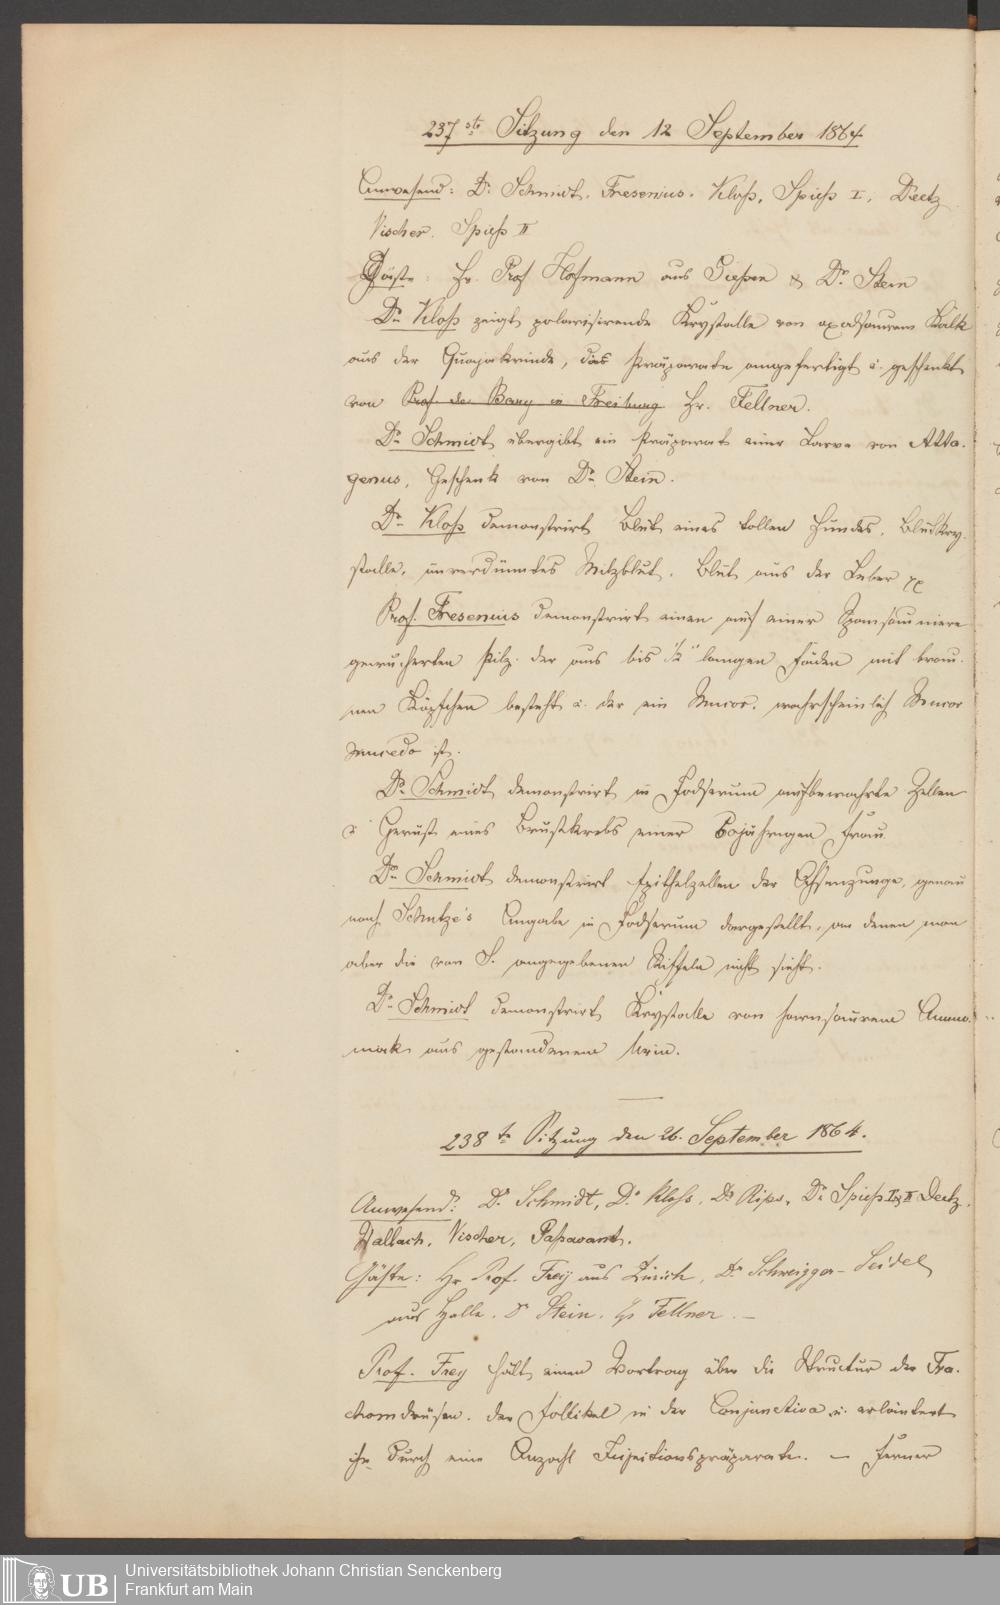 237ste Sitzung den 12 September 1864.
Anwesend: Dr Schmidt. Fresenius. Kloß, Spieß I, Deetz
Vischer. Spieß II
Gäste: Hr. Prof Hofmann aus Gießen & Dr. Stein
Dr Kloß zeigt polarisirende Krystalle von oxalsaurem Kalk
aus der Quajakrinde, das Präparate angefertigt u. geschenkt
von Prof. de Bary in Freiburg Hr. Fellner.
Dr Schmidt übergibt ein Präparat einer Larve von Atta-
genus, Geschenk von Dr. Stein.
Dr. Kloß demonstrirt Blut eines tollen Hundes, Blutkry-
stalle, unverdünntes Milzblut. Blut aus der Leber
Prof. Fresenius demonstrirt einen auf einer
gewucherten Pilz, der aus bis 1/2" langen Fäden mit brau-
nen Köpfchen besteht u. der ein Mucor, wahrscheinlich Mucor
mucedo ist.
Dr. Schmidt demonstrirt in Jodserum aufbewahrte Zellen
u Gerüst eines Brustkrebs einer 60jährigen Frau
Dr. Schmidt demonstrirt Epithelzellen der Ochsenzunge, genau
nach Schultze's Angabe in Jodserum dargestellt, an denen man
aber die von S. angegebenen Riffeln nicht sieht.
Dr. Schmidt demonstrirt Krystalle von harnsaurem Ammo-
niak aus gestandenem Urin.
238te Sitzung den 26. September 1864.
Anwesend: Dr. Schmidt, Dr Kloss, Dr Rips, Dr Spieß I & II Deetz,
Wallach, Vischer, Passavant.
Gäste: Hr Prof. Frey aus Zürich, Dr Schweigger-Seidel
aus Halle. Dr Stein. Hr Fellner. —
Prof. Frey hält einen Vortrag über die Structur der Tra-
chomdrüsen, der Follikel in der Conjunctiva u. erläutert
ihn durch eine Anzahl Injectionspräparate. — Ferner
Universitätsbibliothek Johann Christian Senckenberg
UB Frankfurt am Main